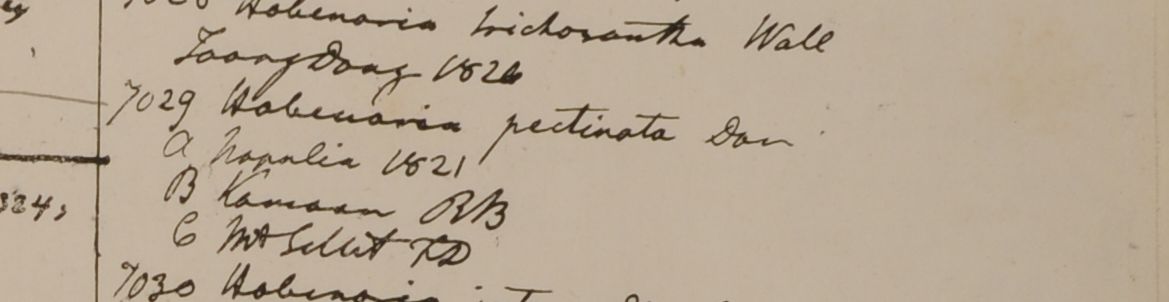 Habenaria trichosantha Wall
Toong Dong 1826
7029 Habenaria pectinata Don
a Napalia 1821
B Kamaon RB
C Mt Sillet FD
7030 Habenaria